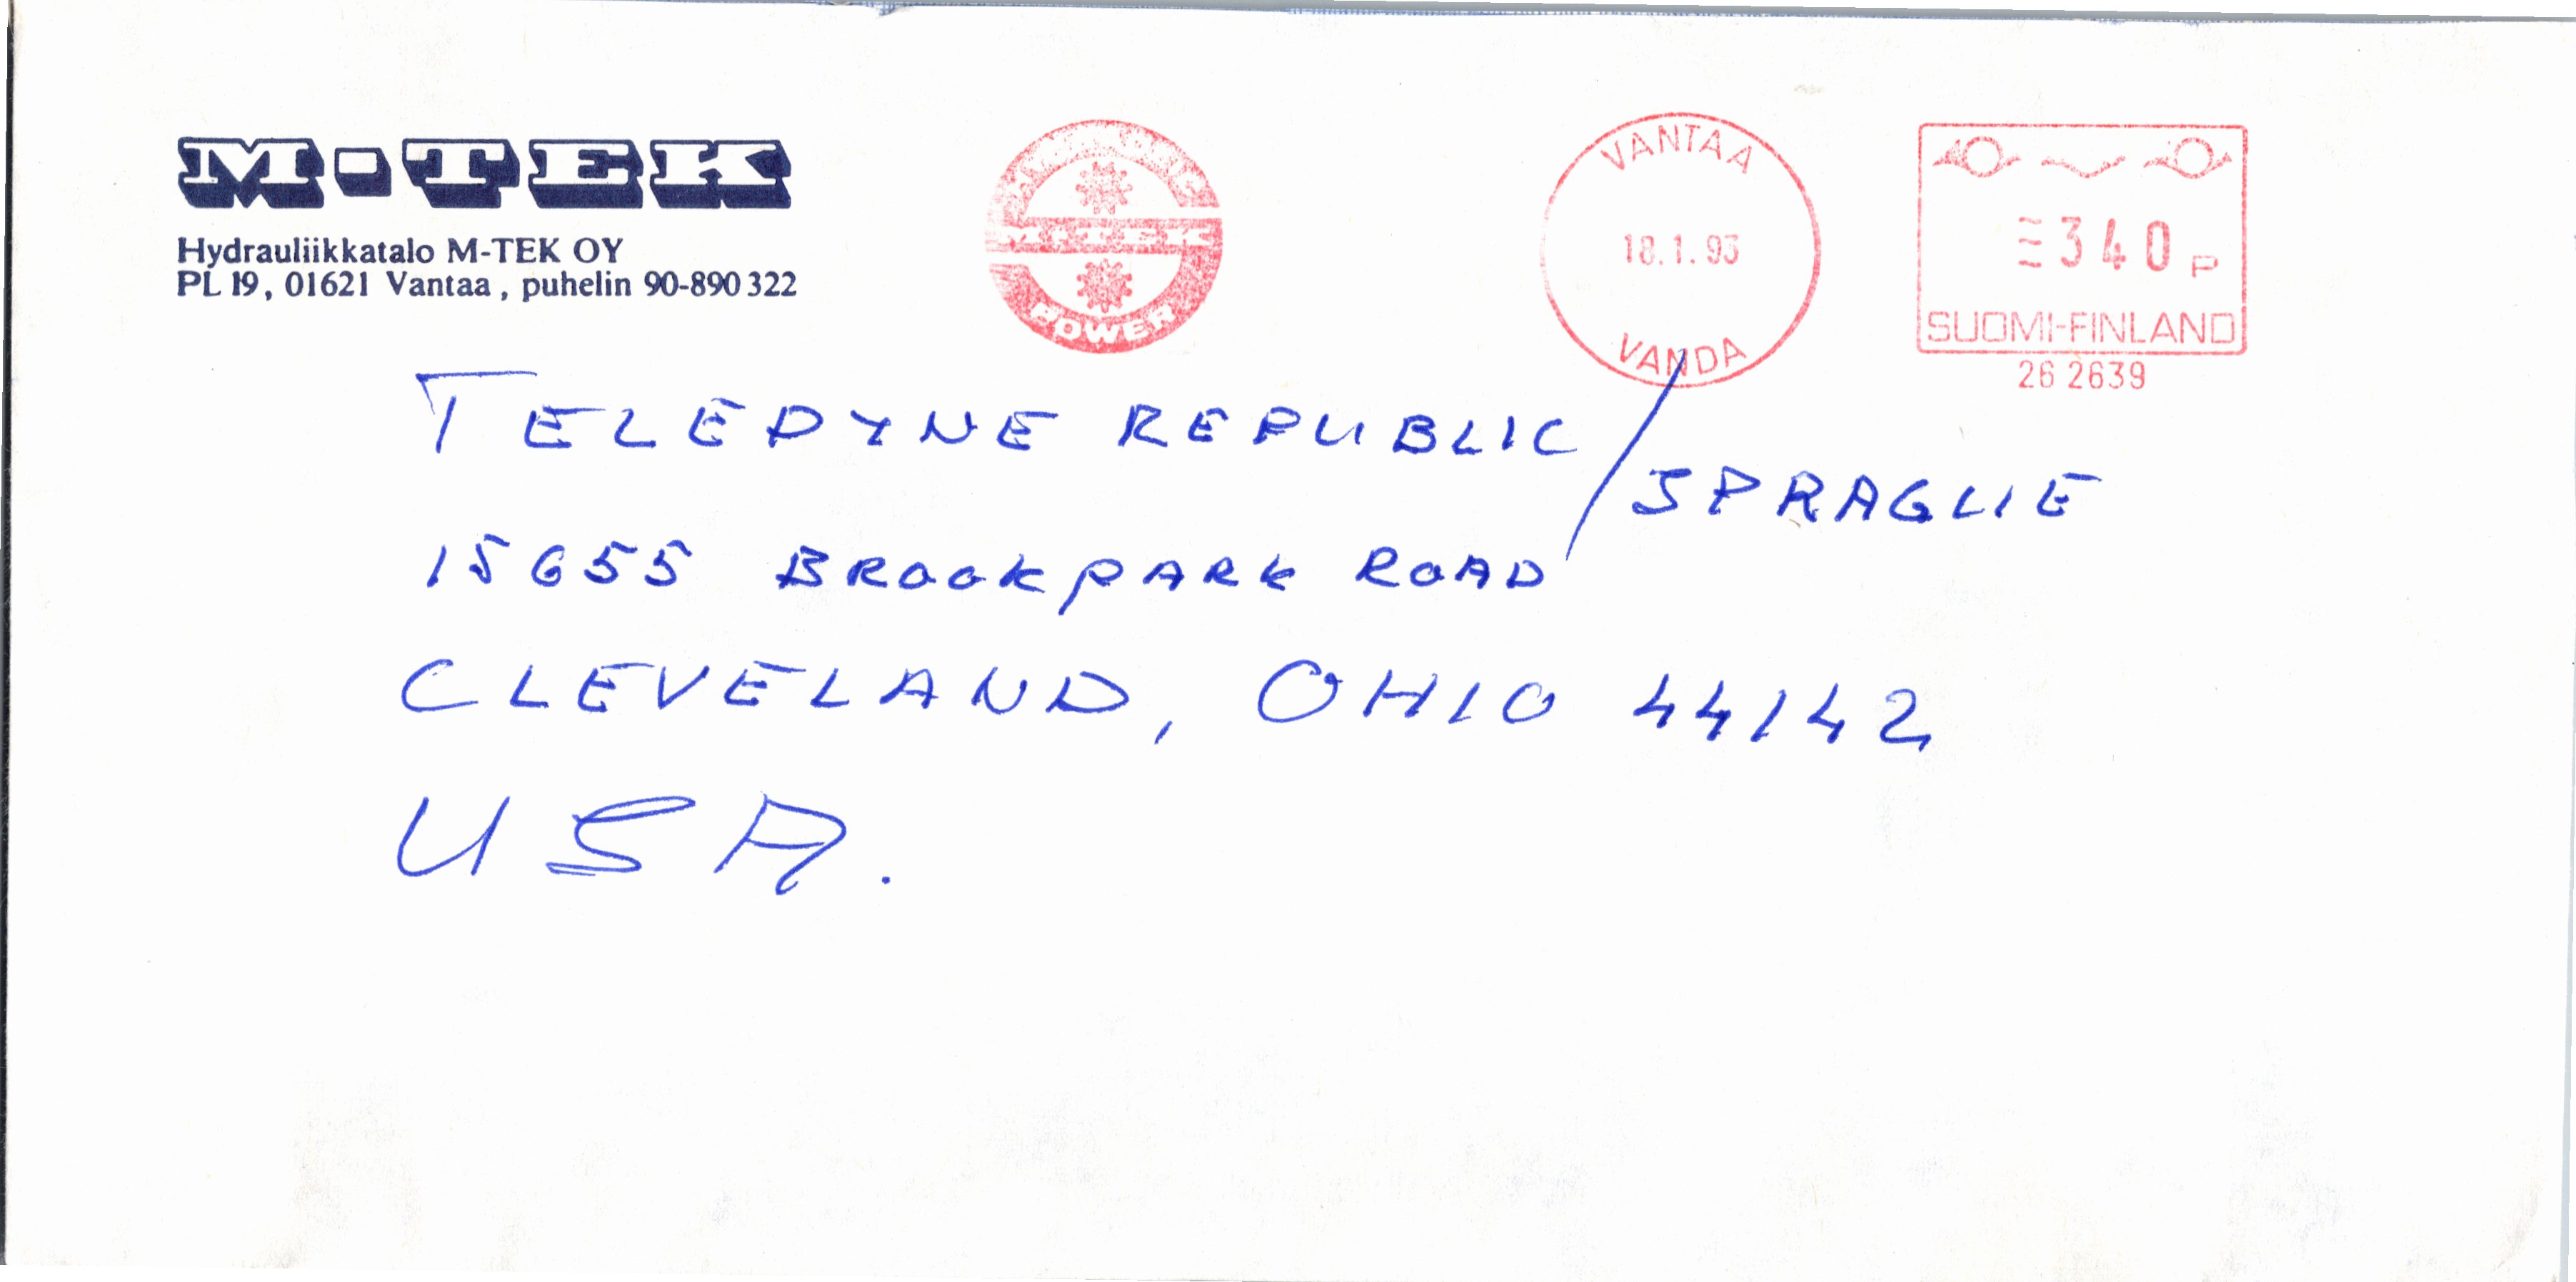 M-TEK
Hydrauliikkatalo M-TEK OY
PL 19, 01621 Vantaa, puhelin 90-890 322
M-TEK
POWER
VANTAA
18.1.93
VANDA
340 P
SUOMI-FINLAND
26 2639
TELEDYNE REPUBLIC / SPRAGUE
15655 BROOKPARK ROAD
CLEVELAND, OHIO 44142
USA.